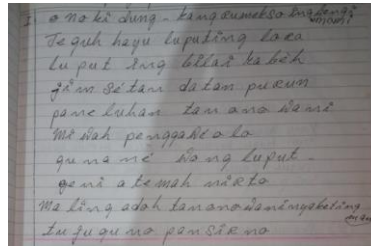 I. o No ki dung - kang rumekso ing Wengi
Teguh hayu luputing lara
luput ing bilai kabeh
jim setan datan purun
paneluhan tan ono wani
Miwah penggaweolo
gunane wong luput -
geni atemah nirto
Maling adoh tanonowaninyaketing
tuju guno pansirno